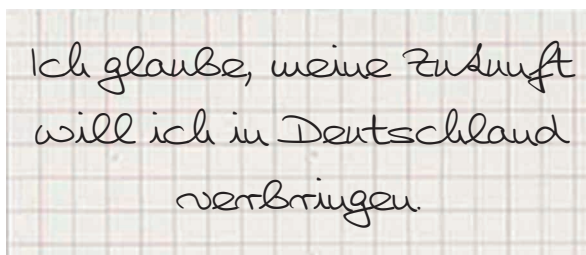 Ich glaube, meine Zukunft
will ich in Deutschland
verbringen.